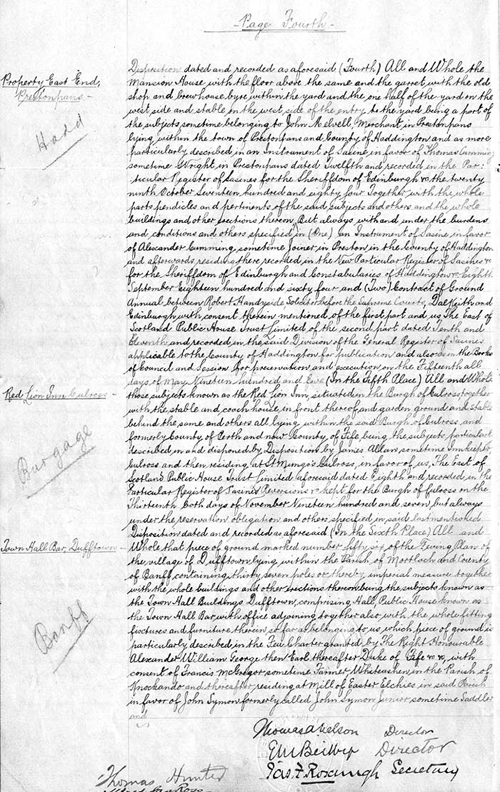 - Page Fourth -
Property East End,
Prestonpans -
Hadd
Disposition dated and recorded as aforesaid (Fourth) All and Whole the
Mansion House with the floor above the same and the garret with the old
shop and brewhouse, byre within the yard and the one half of the yard on the
west side and stable in the west side of the entry to the yard being a part of
the subjects sometime belonging to John Melvell, Merchant in Prestonpans
lying within the town of Prestonpans and County of Haddington and as more
particularly described in an Instrument of Sasine in favor of Thomas Cumming
sometime Wright in Prestonpans dated Twelfth and recorded in the Par-
ticular Register of Sasines for the Sheriffdom of Edinburgh &c the twenty
ninth October Seventeen hundred and eighty four Together with the whole
parts pendicles and pertinents of the said subjects and others and the whole
buildings and other erections thereon, But always with and under the burdens
and conditions and others specified in (One) an Instrument of Sasine in favor
of Alexander Cumming, sometime Joiner in Preston in the County of Haddington
and afterwards residing there, recorded in the New Particular Register of Sasines &c
for the Sheriffdom of Edinburgh and Constabularies of Haddington &c Eighth
September Eighteen hundred and sixty four and (Two) Contract of Ground
Annual between Robert Handyside Solicitor before the Supreme Courts, Dalkeith and
Edinburgh, with consent therein mentioned, of the first part and us The East of
Scotland Public House Trust Limited of the second part dated Tenth and
Eleventh and recorded in the said Division of the General Register of Sasines
applicable to the County of Haddington for publication and also in the Books
of Council and Session for preservation and execution on the Fifteenth all
days of May Nineteen hundred and five (In the Fifth Place) All and Whole
Red Lion Inn Culross -
Burgage
those subjects known as the Red Lion Inn, situated in the Burgh of Culross, together
with the stable and coach house in front thereof, and garden ground and stable
behind the same and others all lying within the said Burgh of Culross, and
formerly County of Perth and now County of Fife, being the subjects particularly
described in and disponed by Disposition by James Allan sometime Innkeeper
Culross and then residing at St Mungo's Culross, in favor of us, The East of
Scotland Public House Trust Limited aforesaid dated Eighth and recorded in the
Particular Register of Sasines Reversions &c kept for the Burgh of Culross on the
Thirteenth both days of November Nineteen hundred and seven, but always
under the reservation obligation and others specified in said last mentioned
Disposition dated and recorded as aforesaid (In the Sixth Place) All and
Town Hall Bar, Dufftown -
Banff
Whole that piece of ground marked number fifty six of the Feuing Plan of
the village of Dufftown lying within the Parish of Mortlach and County
of Banff, containing thirty seven poles or thereby imperial measure together
with the whole buildings and other erections thereon being the subjects known as
the Town Hall Buildings Dufftown, comprising Hall, Public House known as
the Town Hall Bar, with office adjoining together also with the whole fitting
fixtures and furniture therein so far as belonging to us, which piece of ground is
particularly described in the Feu Charter granted by The Right Honourable
Alexander William George then Earl thereafter Duke of Fife &c &c, with
consent of Francis McGregor sometime Farmer, in the Parish of
Knockando and thereafter residing at Mill of Easter Elchies in said Parish
in favor of John Symon formerly called John Symon junior sometime Saddler
and
Thomas Nelson Director
Director
Jas. F. Roxburgh Secretary
Thomas Hunter